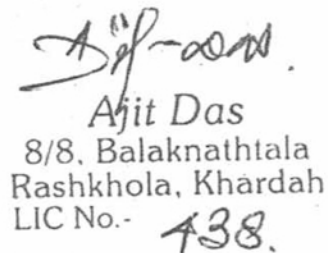 Ajit Das
8/8, Balaknathtala
Rashkhola, Khardah
LIC No.- 438.